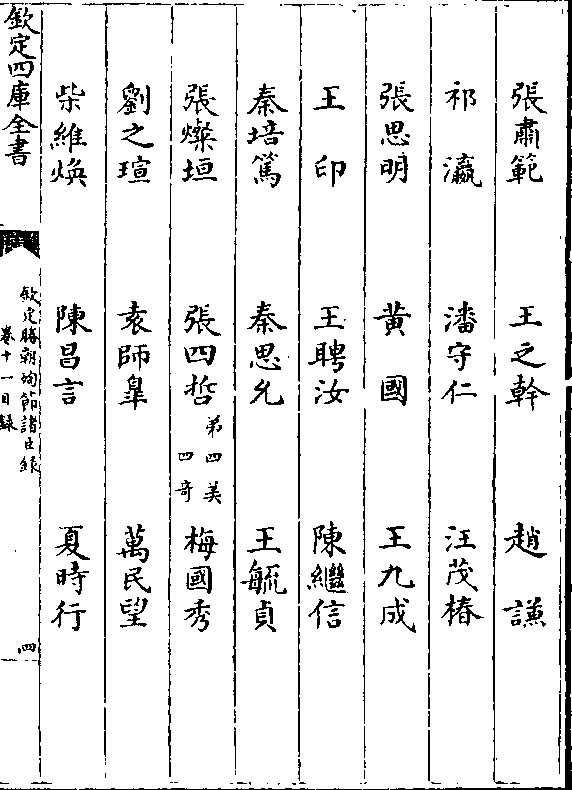 張肅範 王之幹 趙謙
祁瀛 潘守仁 汪茂椿
張思明 黄國 王九成
王印 王聘汝 陳繼信
秦培篤 秦思允 王毓貞
張燦垣 張四哲 弟四美 四奇 梅國秀
劉之瑄 袁師臯 萬民望
柴維煥 陳昌言 夏時行
欽定四庫全書
欽定勝朝殉節諸臣録
卷十一目録
四